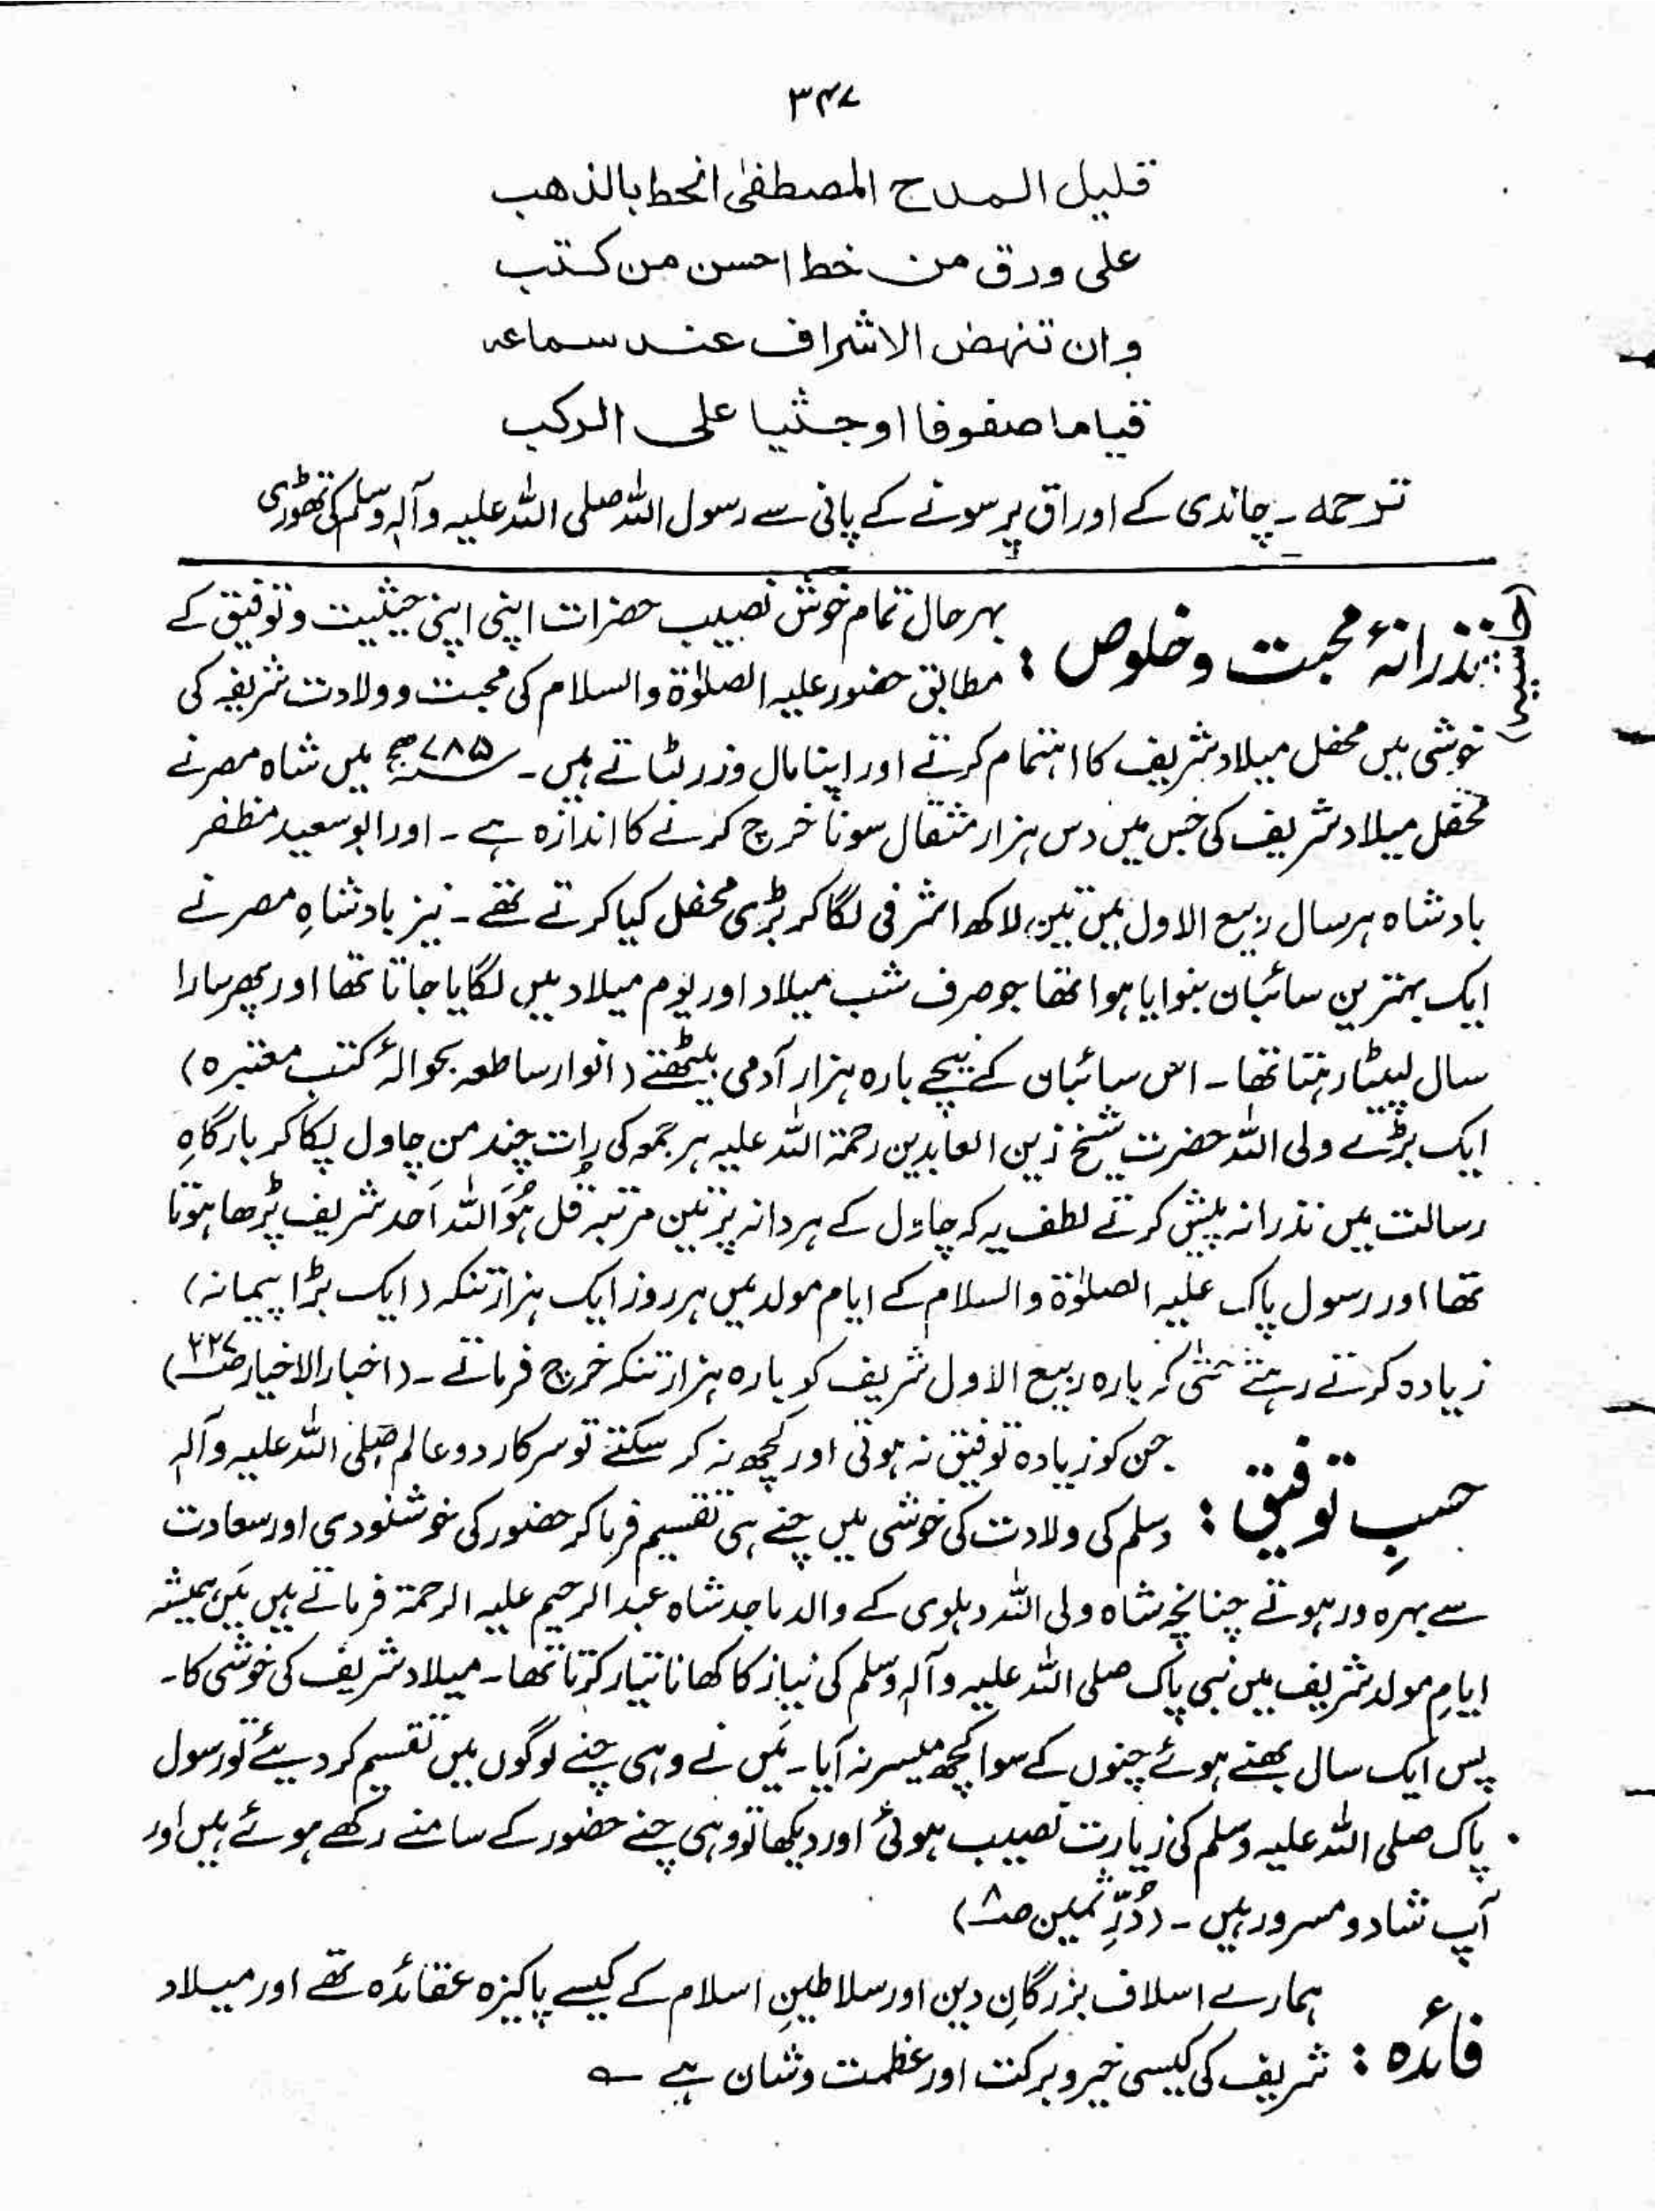 ۳۴۷
قلیل المدح المصطفیٰ انحط بالذھب
علی ورق من خط احسن من کتب
وان تنہض الاشراف عند سماعہ
قیاما صفوفا او جثیا علی الرکب
ترجمہ ۔ چاندی کے اوراق پر سونے کے پانی سے رسول اللہ صلی اللہ علیہ وآلہ وسلم کی تھوڑی
نذرانۂ محبت و خلوص : بہر حال تمام خوش نصیب حضرات اپنی اپنی حیثیت و توفیق کے
مطابق حضور علیہ الصلوٰۃ والسلام کی محبت و ولادت شریفہ کی
خوشی میں محفل میلاد شریف کا اہتمام کرتے اور اپنا مال و زر لٹاتے ہیں ۔ ۷۸۵ھ میں شاہ مصر نے
محفل میلاد شریف کی جس میں دس ہزار مثقال سونا خرچ کرنے کا اندازہ ہے ۔ اور ابو سعید مظفر
بادشاہ ہر سال ربیع الاول میں تین لاکھ اشرفی لگا کر بڑی محفل کیا کرتے تھے ۔ نیز بادشاہِ مصر نے
ایک بہترین سائبان بنوایا ہوا تھا جو صرف شب میلاد اور یوم میلاد میں لگایا جاتا تھا اور پھر سارا
سال لپیٹا رہتا تھا ۔ اس سائبان کے نیچے بارہ ہزار آدمی بیٹھتے (انوار ساطعہ بحوالۂ کتب معتبرہ)
ایک بڑے ولی اللہ حضرت شیخ زین العابدین رحمۃ اللہ علیہ ہر جمعہ کی رات چند من چاول پکا کر بارگاہِ
رسالت میں نذرانہ پیش کرتے لطف یہ کہ چاول کے ہر دانہ پر تین مرتبہ قل ہُوَ اللہ اَحد شریف پڑھا ہوتا
تھا اور رسول پاک علیہ الصلوٰۃ والسلام کے ایام مولد میں ہر روز ایک ہزار تنکہ (ایک بڑا پیمانہ)
زیادہ کرتے رہتے حتی کہ بارہ ربیع الاول شریف کو بارہ ہزار تنکہ خرچ فرماتے ۔ (اخبار الاخیار صـ ۲۲۷)
حسبِ توفیق : جن کو زیادہ توفیق نہ ہوتی اور کچھ نہ کر سکتے تو سرکار دو عالم صلی اللہ علیہ وآلہ
وسلم کی ولادت کی خوشی میں چنے ہی تقسیم فرما کر حضور کی خوشنودی اور سعادت
سے بہرہ ور ہوتے چنانچہ شاہ ولی اللہ دہلوی کے والد ماجد شاہ عبد الرحیم علیہ الرحمۃ فرماتے ہیں میں ہمیشہ
ایامِ مولد شریف میں نبی پاک صلی اللہ علیہ وآلہ وسلم کی نیاز کا کھانا تیار کرتا تھا ۔ میلاد شریف کی خوشی کا ۔
پس ایک سال بھنے ہوئے چنوں کے سوا کچھ میسر نہ آیا ۔ میں نے وہی چنے لوگوں میں تقسیم کر دیئے تو رسول
پاک صلی اللہ علیہ وسلم کی زیارت نصیب ہوئی اور دیکھا تو وہی چنے حضور کے سامنے رکھے ہوئے ہیں اور
آپ شاد و مسرور ہیں ۔ (دُرِّ ثمین صـ ۸)
فائدہ : ہمارے اسلاف بزرگانِ دین اور سلاطینِ اسلام کے کیسے پاکیزہ عقائدہ تھے اور میلاد
شریف کی کیسی خیر و برکت اور عظمت و شان ہے ؎